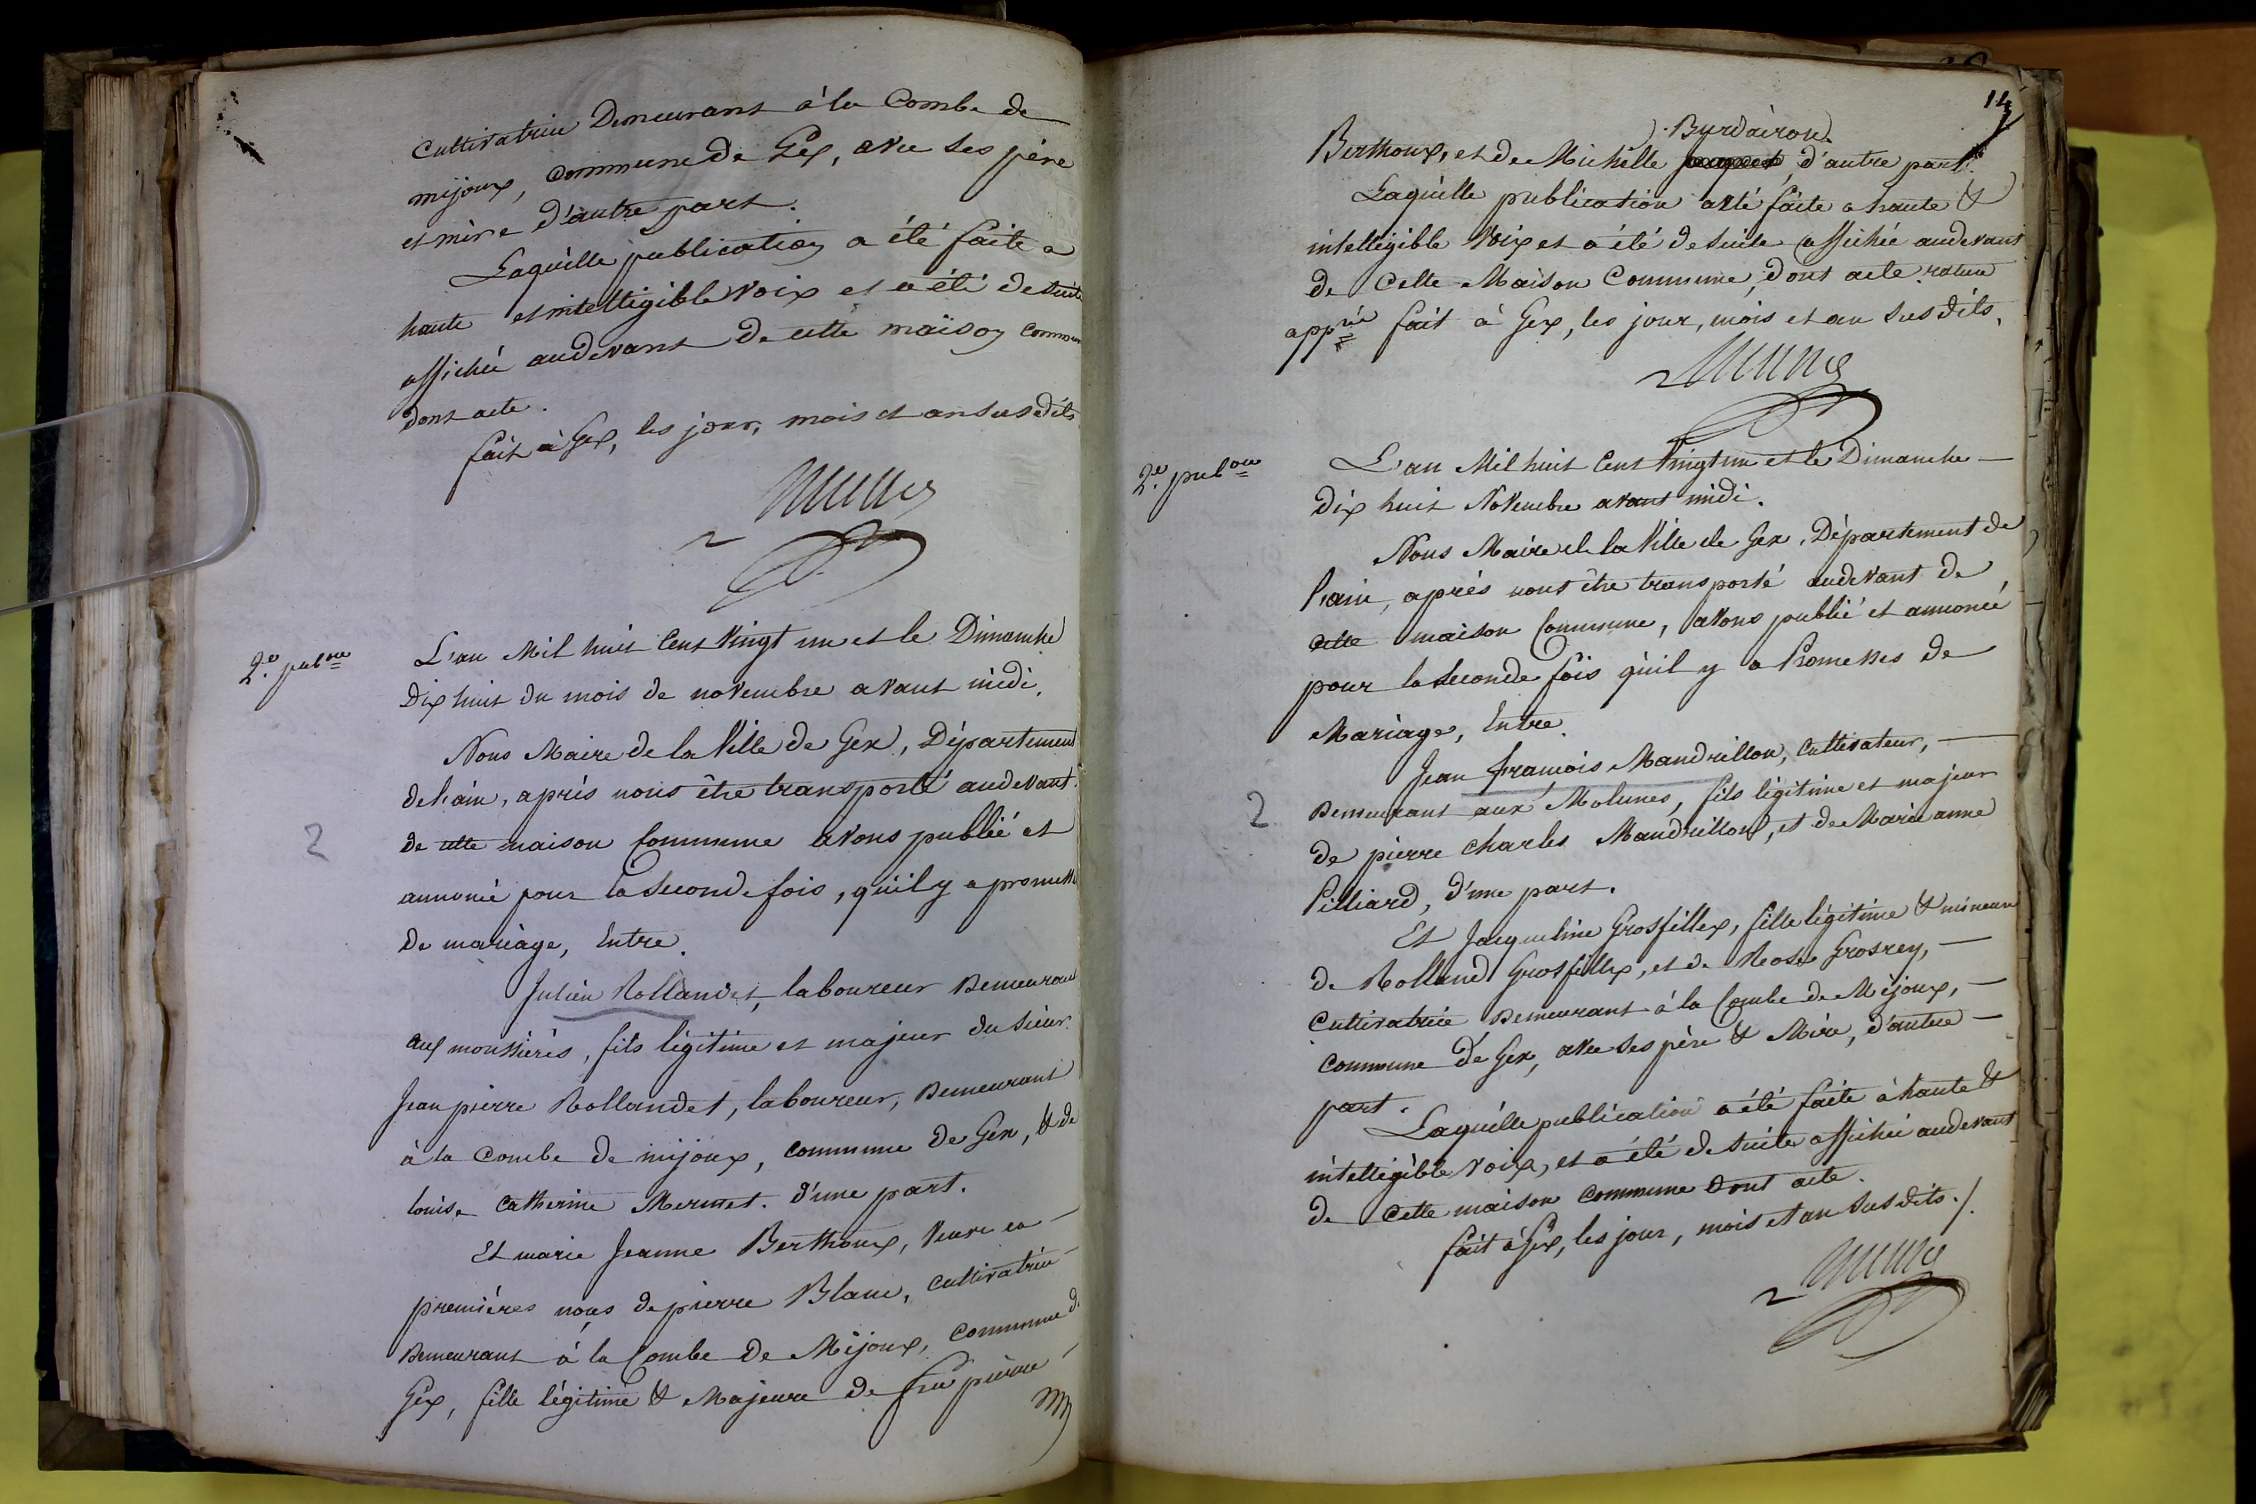 Cultivatrice Demeurant à la Combe de
mijoux, commune de Gex, avec ses père
et mère d'autre part.
Laquelle publication a été faite a
haute et intelligible voix et a été de suite
affichée audevant de cette maison commune
dont acte.
fait à Gex, les jour, mois et an susdits
2.e pub.on
L'an Mil huit Cent Vingt un et le Dimanche
Dix huit du mois de novembre avant midi,
Nous Maire de la Ville de Gex, Département
de l'ain, après nous être transporté audevant
2
de cette maison Commune avons publié et
annoncé pour la seconde fois, qu'il y a promesse
De mariage, Entre.
Julien Rollandet, laboureur Demeurant
aux moussières, fils légitime et majeur du sieur
Jean pierre Rollandet, laboureur, Demeurant
à la Combe de mijoux, commune de Gex, & de
louise Catherine Mermet. d'une part.
Et marie Jeanne Berthoux, Veuve en
premières noces de pierre Blanc, Cultivatrice
Demeurant à la Combe de Mijoux, Commune de
Gex, fille légitime & Majeure de feu pierre
14
Burdairon
Berthoux, et de Michelle d'autre part.
Laquelle publication a été faite a haute &
intelligible Voix et a été de suite affichée audevant
de Cette Maison Commune, dont acte rature
app.vée fait à Gex, les jour, mois et an susdits.
2.e pub.on
L'an Mil huit Cent Vingt un et le Dimanche
Dix huit Novembre avant midi.
Nous Maire de la Ville de Gex, Département de
l'ain, après nous être transporté audevant de
cette maison Commune, avons publié et annoncé
pour la seconde fois qu'il y a Promesses de
Mariage, Entre.
Jean françois Mandrillon, Cultivateur,
2
Demeurant aux Molunes, fils légitime et majeur
de pierre Charles Mandrillon, et de Marie anne
Pilliard, d'une part.
Et Jacqueline Grosfillex, fille légitime & mineure
de Rolland Grosfillex, et de Rose Grosrey,
Cultivatrice Demeurant à la Combe de Mijoux,
Commune de Gex, avec ses père & Mère, d'autre
part.
Laquelle publication a été faite à haute &
intelligible voix, et a été de suite affichée audevant
de Cette maison Commune Dont acte.
fait à Gex, les jour, mois et an susdits./.